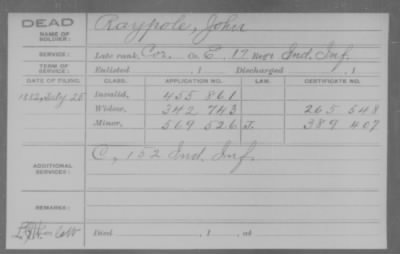 DEAD
NAME OF SOLDIER: Raypole, John
SERVICE: Late rank, Cor. Co. E, 17 Reg't Ind. Inf.
TERM OF SERVICE: Enlisted , 1 Discharged , 1
DATE OF FILING. CLASS. APPLICATION NO. LAW. CERTIFICATE NO.
1882, July 25 Invalid, 455 861
Widow, 342 743 265 548
Minor, 569 526 J. 389 407
ADDITIONAL SERVICES: C, 152 Ind. Inf.
REMARKS:
Died , 1 , at